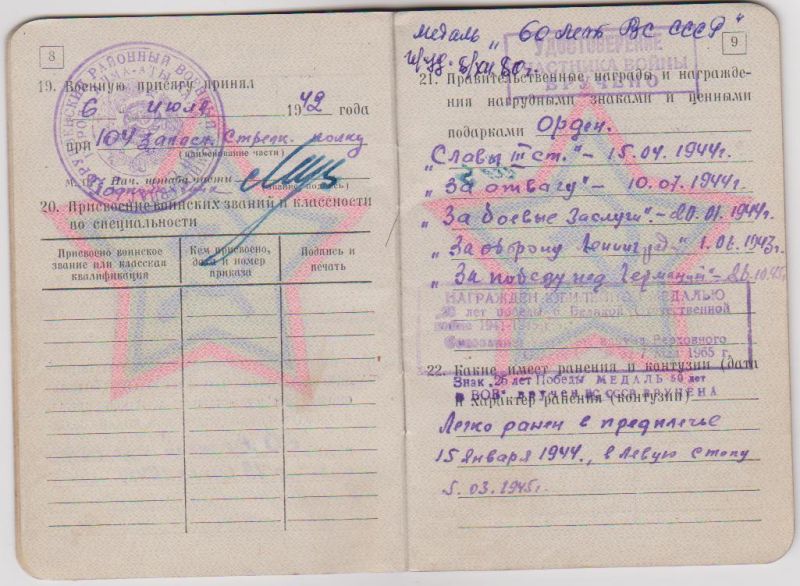 8
19. Военную присягу принял
6 июля 1942 года
при 104 запасн. Стрелк. полку
(наименование части)
Нач. штаба части
20. Присвоение воинских званий и классности
по специальности
Присвоено воинское
звание или классная
квалификация
Кем присвоено,
дата и номер
приказа
Подпись и
печать
Медаль "60 лет ВС СССР"
9
УДОСТОВЕРЕНИЕ
УЧАСТНИКА ВОЙНЫ
ВРУЧЕНО
21. Правительственные награды и награжде-
ния нагрудными знаками и ценными
подарками Орден.
"Славы III ст." - 15.04.1944г.
"За отвагу" - 10.07.1944г.
"За боевые Заслуги" - 20.01.1944г.
"За оборону Ленинграда" 1.06.1943г.
"За победу над Германией" - 26.10.45г.
НАГРАЖДЕН ЮБИЛЕЙНОЙ МЕДАЛЬЮ
"20 лет победы в Великой Отечественной
войне 1941-1945 г.
Верховного
7 мая 1965 г.
22. Какие имеет ранения и контузии (дата
Знак „25 лет Победы МЕДАЛЬ 50 лет
в ВОВ" ВРУЧЕН ВС СССР ВРУЧЕНА
и характер ранения (контузии)
Легко ранен в предплечье
15 Января 1944., в левую стопу
5.03.1945г.